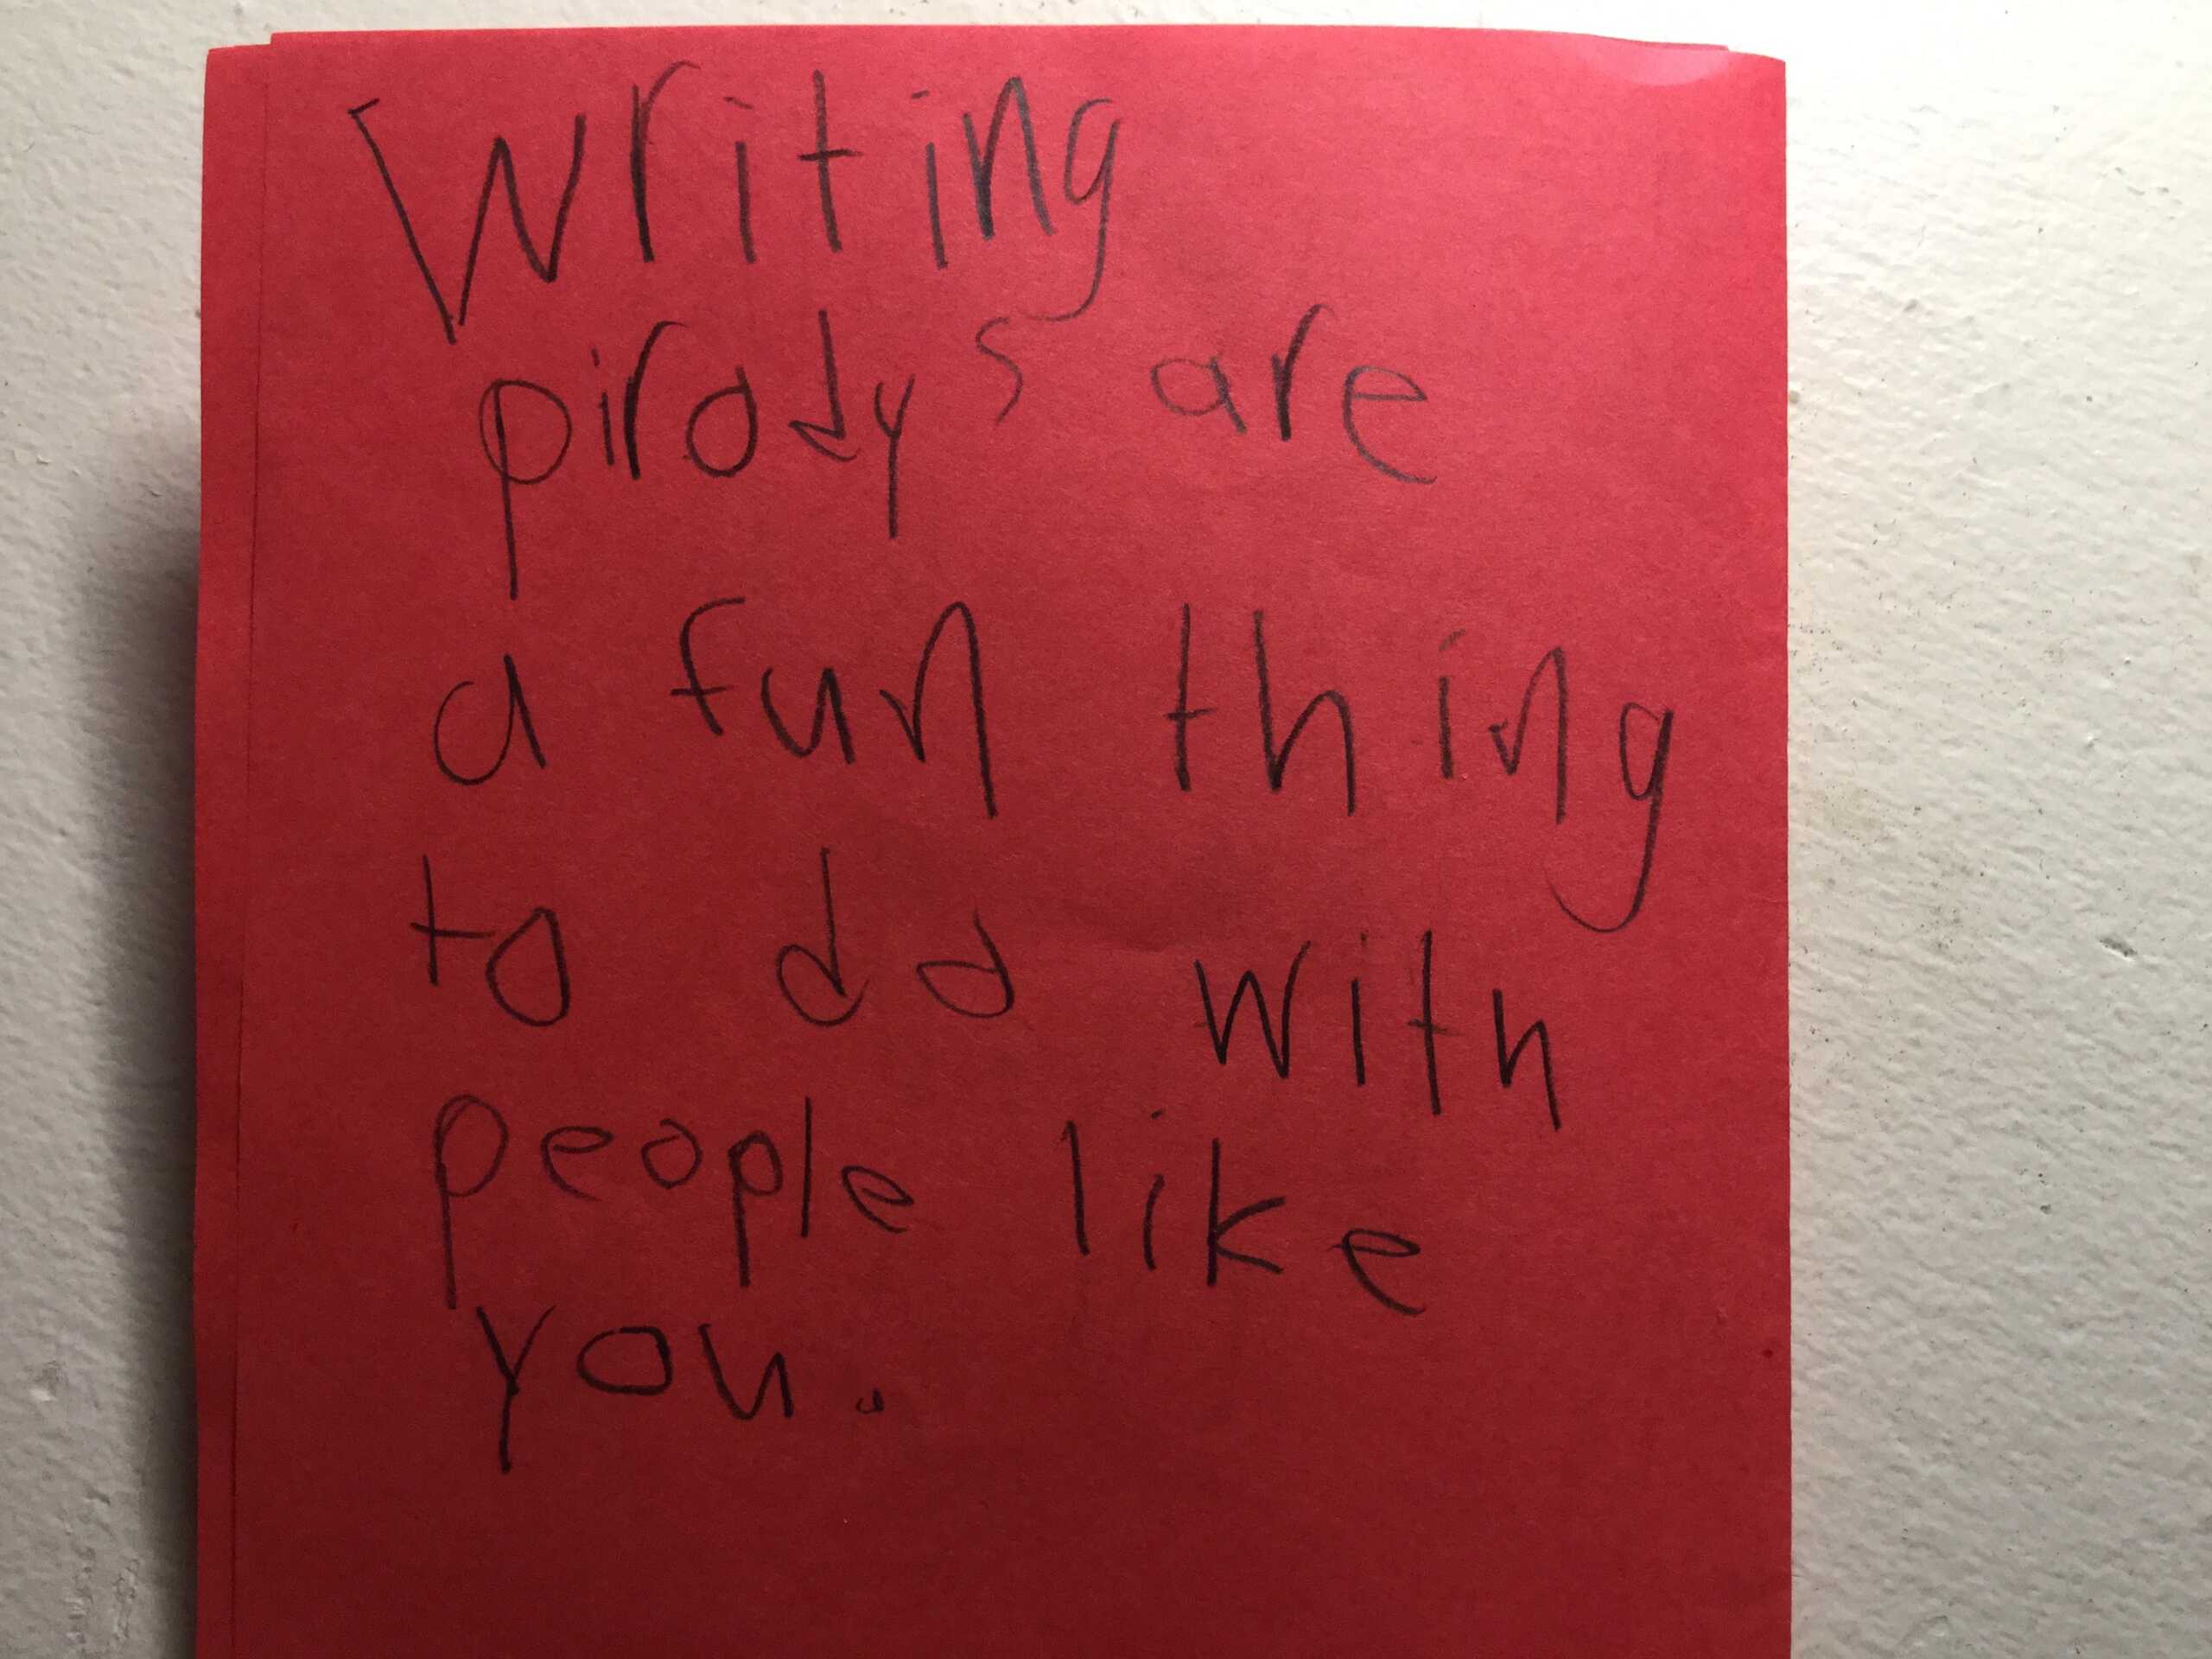 Writing
pirodys are
a fun thing
to do with
people like
you.